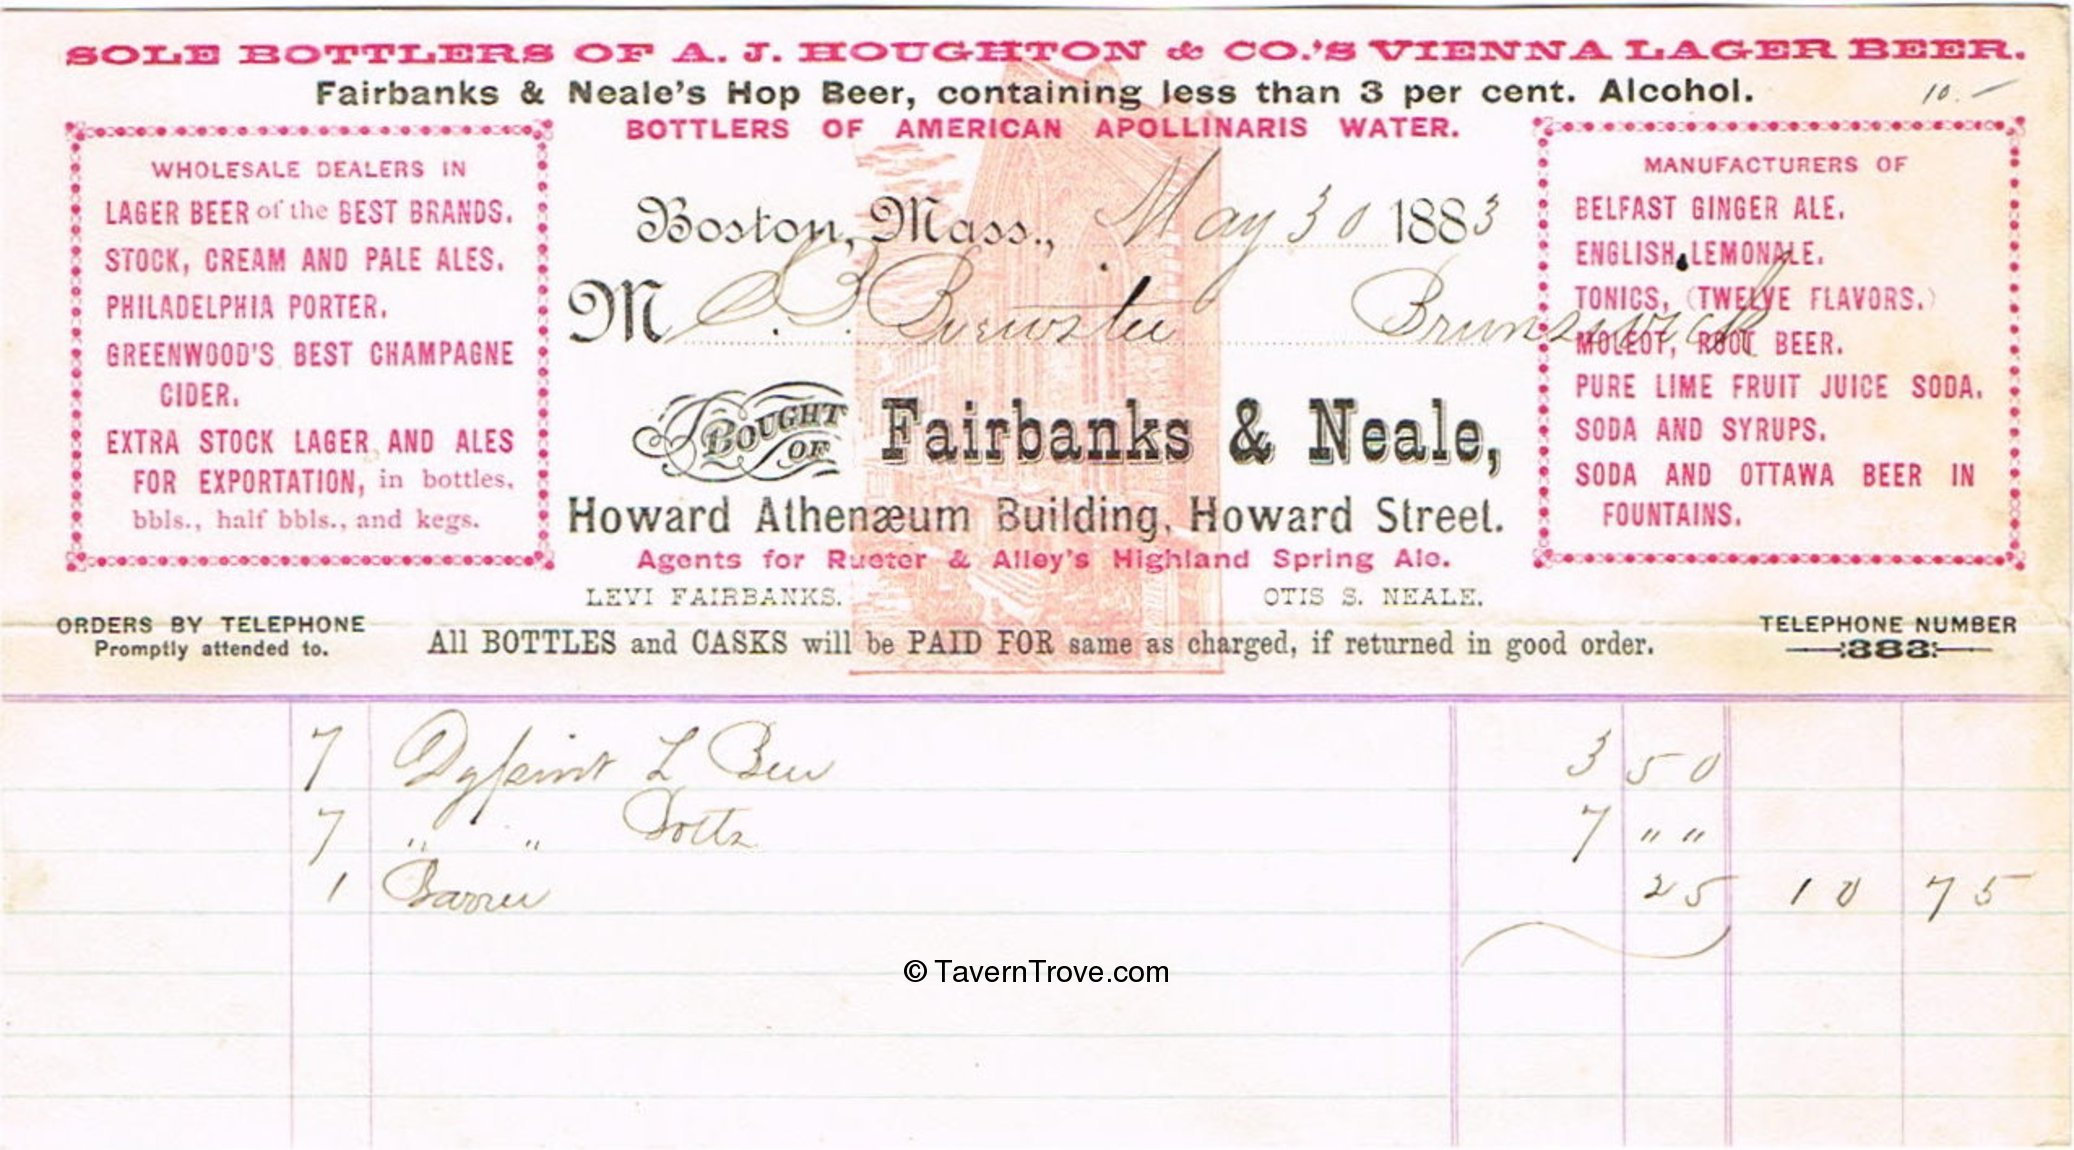 SOLE BOTTLERS OF A. J. HOUGHTON & CO.'S VIENNA LAGER BEER.
Fairbanks & Neale's Hop Beer, containing less than 3 per cent. Alcohol.
10.–
BOTTLERS OF AMERICAN APOLLINARIS WATER.
WHOLESALE DEALERS IN
LAGER BEER of the BEST BRANDS.
STOCK, CREAM AND PALE ALES.
PHILADELPHIA PORTER.
GREENWOOD'S BEST CHAMPAGNE
CIDER.
EXTRA STOCK LAGER AND ALES
FOR EXPORTATION, in bottles,
bbls., half bbls., and kegs.
Boston, Mass., May 30 1883
M S. B. Brewster Brunswick
BOUGHT OF Fairbanks & Neale,
Howard Athenæum Building, Howard Street.
Agents for Rueter & Alley's Highland Spring Ale.
LEVI FAIRBANKS. OTIS S. NEALE.
MANUFACTURERS OF
BELFAST GINGER ALE.
ENGLISH LEMONALE.
TONICS, (TWELVE FLAVORS.)
MOLEOT, ROOT BEER.
PURE LIME FRUIT JUICE SODA.
SODA AND SYRUPS.
SODA AND OTTAWA BEER IN
FOUNTAINS.
ORDERS BY TELEPHONE
Promptly attended to.
All BOTTLES and CASKS will be PAID FOR same as charged, if returned in good order.
TELEPHONE NUMBER
383
7 Dz pint L Beer 3 50
7 " " Botts 7 " "
1 Barrel 25 10 75
© TavernTrove.com